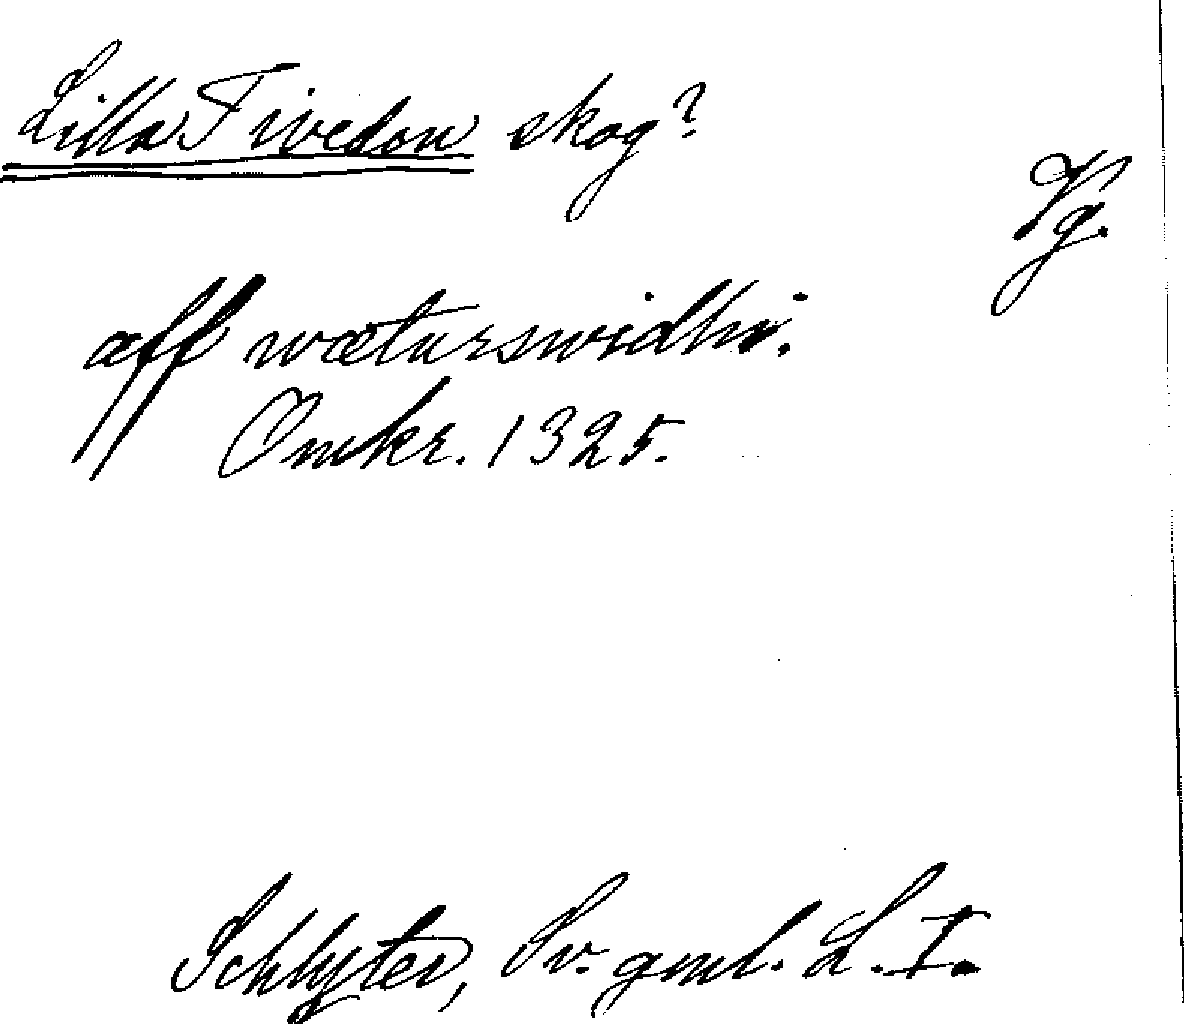 Lilla Tiveden skog?
Vg.
aff wæturswidhi.
Omkr. 1325.
Schlyter, Sv. gml. L. I.